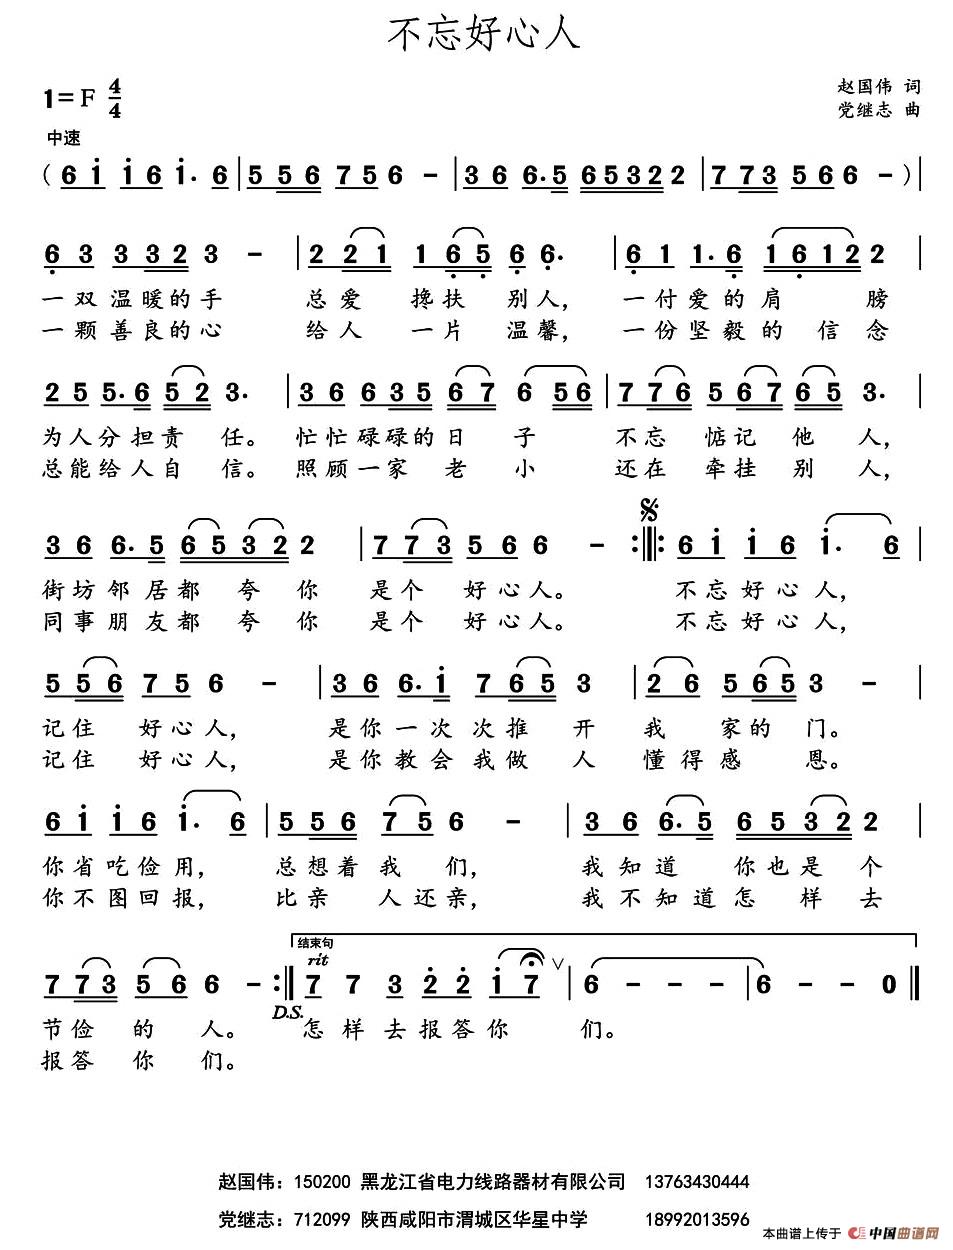 不忘好心人
1=F 4/4
赵国伟 词
党继志 曲
中速
(6 i i 6 i. 6 | 5 5 6 7 5 6 - | 3 6 6. 5 6 5 3 2 2 2 | 7 7 3 5 6 6 - ) |
6 3 3 3 2 3 - | 2 2 1 1 6 5 6 6. | 6 1 1. 6 1 6 1 2 2 |
一双温暖的手 总爱 搀扶 别人, 一付爱的肩 膀
一颗善良的心 给人 一片 温馨, 一份坚毅的 信念
2 5 5. 6 5 2 3. | 3 6 6 3 5 6 7 6 5 6 | 7 7 6 5 6 7 6 5 3. |
为人分担责 任。 忙忙碌碌的日 子 不忘 惦记 他 人,
总能给人自 信。 照顾一家 老 小 还在 牵挂 别 人,
3 6 6. 5 6 5 3 2 2 | 7 7 3 5 6 6 - :‖: 6 i i 6 i. 6 |
街坊邻居都 夸 你 是个 好心人。 不忘好心人,
同事朋友都 夸 你 是个 好心人。 不忘好心人,
5 5 6 7 5 6 - | 3 6 6. i 7 6 5 3 | 2 6 5 6 5 3 - |
记住 好心人, 是你一次次推 开 我 家的 门。
记住 好心人, 是你教会我做 人 懂得感 恩。
6 i i 6 i. 6 | 5 5 6 7 5 6 - | 3 6 6. 5 6 5 3 2 2 |
你省吃俭用, 总想着我 们, 我知道 你也是 个
你不图回报, 比亲 人还亲, 我不知道怎 样去
结束句
rit
7 7 3 5 6 6 - :‖ 7 7 3 2 2 i 7 ∨ | 6 - - - | 6 - - 0 ‖
D.S.
节俭 的 人。 怎样去报答你 们。
报答 你 们。
赵国伟：150200 黑龙江省电力线路器材有限公司 13763430444
党继志：712099 陕西咸阳市渭城区华星中学 18992013596
本曲谱上传于 中国曲谱网